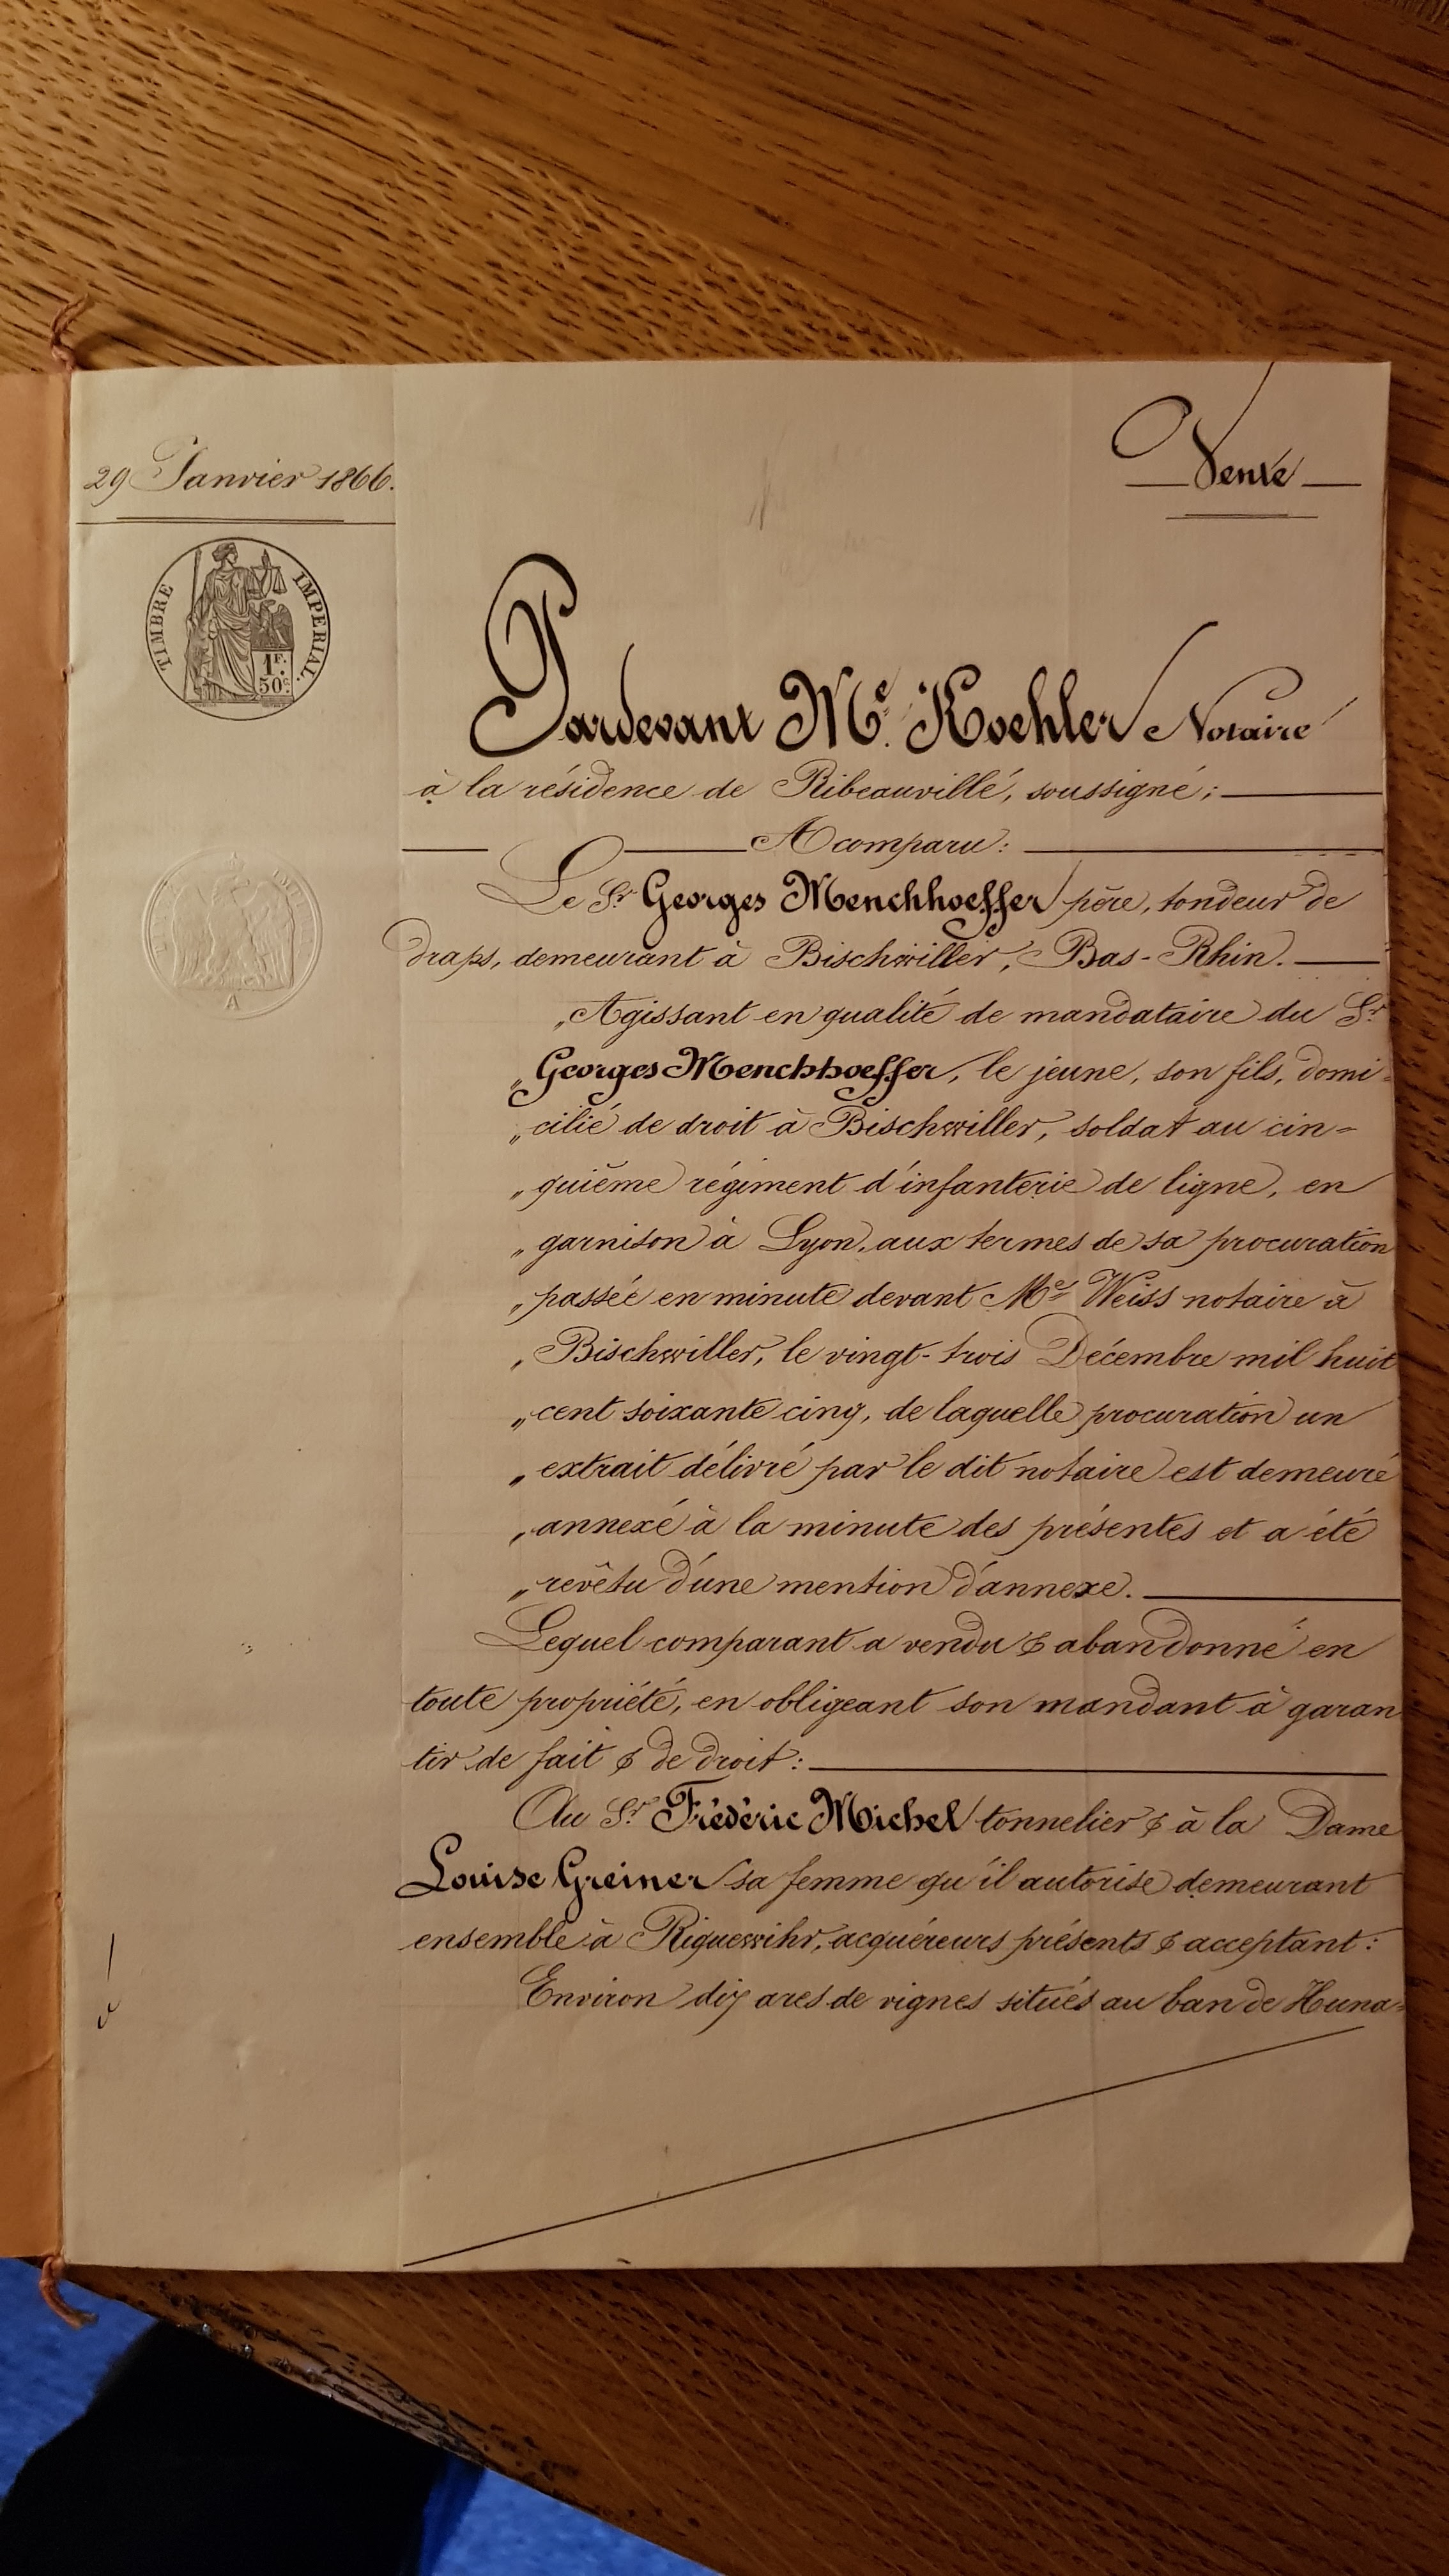 29 Janvier 1866.
Vente
TIMBRE IMPERIAL.
1F.
50c.
Pardevant Me. Koehler Notaire
à la résidence de Ribeauvillé, soussigné;
A comparu:
Le Sr. Georges Menchhoeffer père, tondeur de
draps, demeurant à Bischwiller, Bas-Rhin.
A
„Agissant en qualité de mandataire du Sr.
„Georges Menchhoeffer, le jeune, son fils, domi-
„cilié de droit à Bischwiller, soldat au cin-
„quième régiment d'infanterie de ligne, en
„garnison à Lyon, aux termes de sa procuration
„passée en minute devant Me. Weiss notaire à
„Bischwiller, le vingt-trois Décembre mil huit
„cent soixante cinq, de laquelle procuration un
„extrait délivré par le dit notaire est demeuré
„annexé à la minute des présentes et a été
„revêtu d'une mention d'annexe.
Lequel comparant a vendu & abandonné en
toute propriété, en obligeant son mandant à garan
tir de fait & de droit:
Au Sr. Frédéric Michel tonnelier & à la Dame
Louise Greiner sa femme qu'il autorise demeurant
ensemble à Riquewihr, acquéreurs présents & acceptant:
Environ dix ares de vignes situés au ban de Huna-